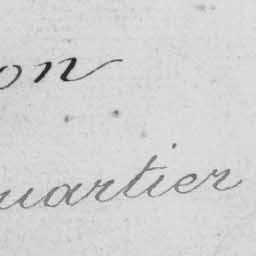 on
uartier